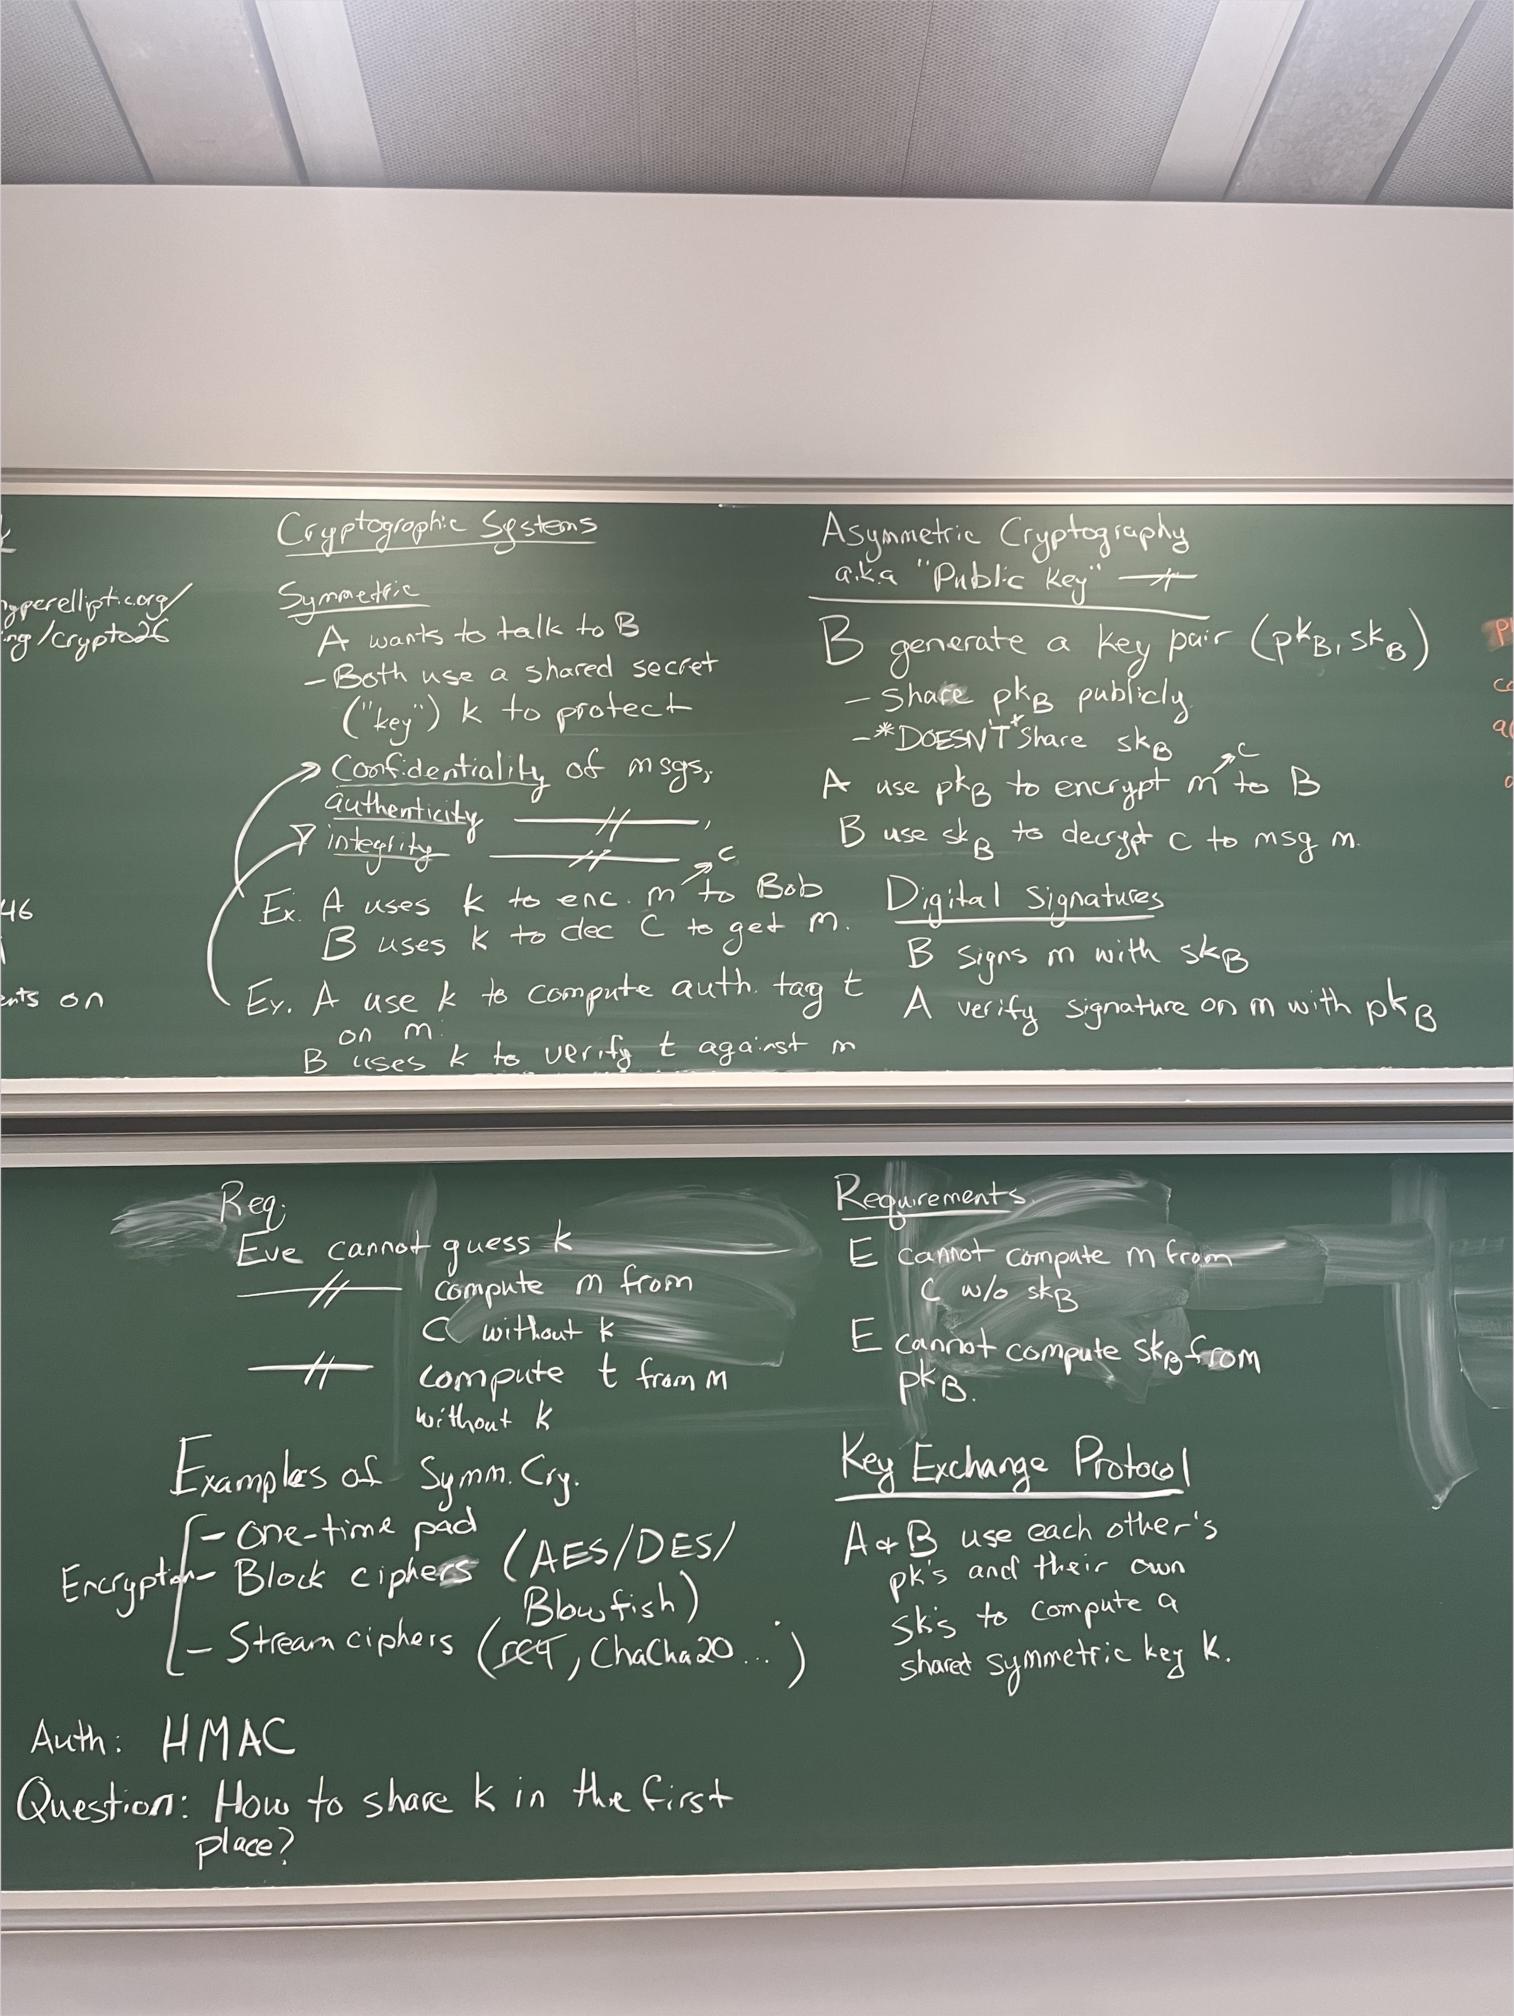 hyperelliptic.org/
ing/crypto26
46
ents on
Cryptographic Systems
Symmetric
A wants to talk to B
- Both use a shared secret
("key") k to protect
Confidentiality of msgs,
authenticity —//— ,
integrity —//—
Ex. A uses k to enc. m ↗ c to Bob
B uses k to dec C to get m.
Ex. A use k to compute auth. tag t
on m.
B uses k to verify t against m
Asymmetric Cryptography
a.k.a "Public key" —//—
B generate a key pair (pkB, skB)
- Share pkB publicly
- *DOESN'T* share skB
A use pkB to encrypt m ↗ c to B
B use skB to decrypt c to msg m.
Digital Signatures
B signs m with skB
A verify signature on m with pkB
Req.
Eve cannot guess k
—//— compute m from
C without k
—//— compute t from m
without k
Examples of Symm. Cry.
Encryption
- One-time pad
- Block ciphers (AES/DES/
Blowfish)
- Stream ciphers (RC4, ChaCha20...)
Auth: HMAC
Question: How to share k in the first
place?
Requirements.
E cannot compute m from
C w/o skB
E cannot compute skB from
pkB.
Key Exchange Protocol
A & B use each other's
pk's and their own
sk's to compute a
shared symmetric key k.